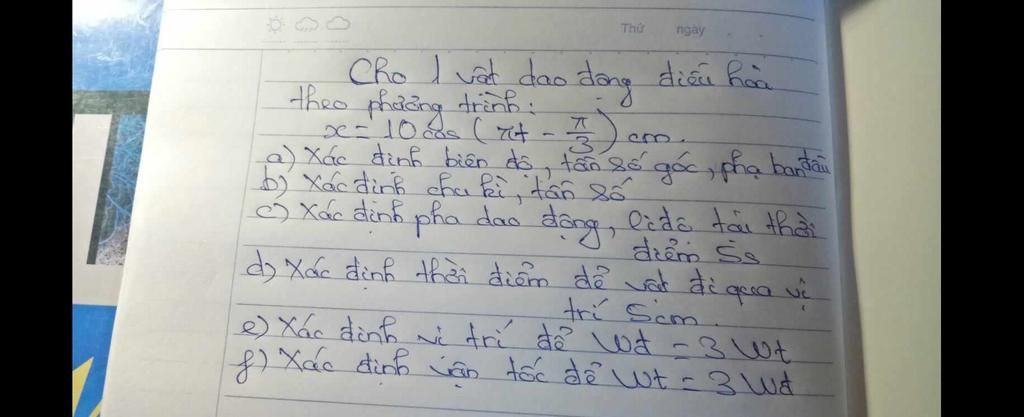 Thứ ngày
Cho 1 vật dao động điều hoà
theo phương trình:
x = 10 cos (πt - π/3) cm.
a) Xác định biên độ, tần số góc, pha ban đầu
b) Xác định chu kì, tần số
c) Xác định pha dao động, li độ tại thời
điểm 5s
d) Xác định thời điểm để vật đi qua vị
trí 5cm.
e) Xác định vị trí để Wđ = 3 Wt
f) Xác định vận tốc để Wt = 3 Wđ